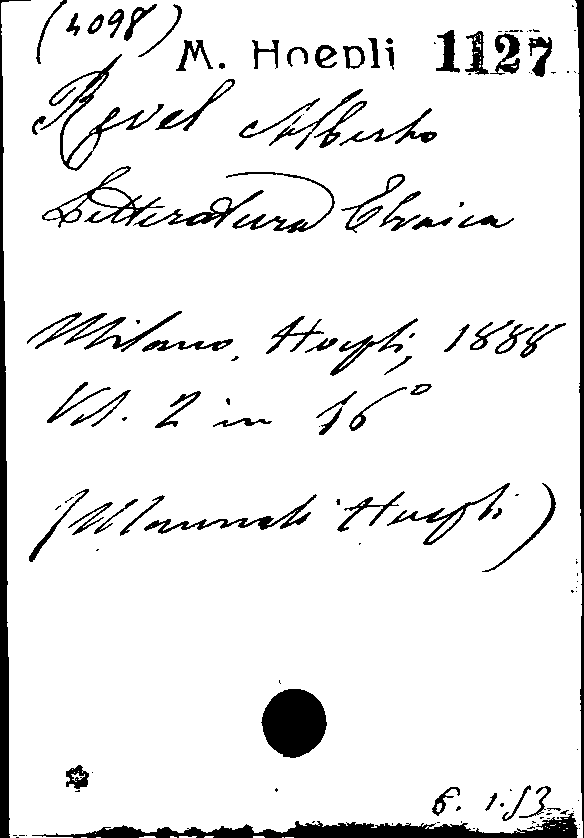 (4098)
M. Hoepli 1127
Revel Alberto
Letteratura Ebraica
Milano, Hoepli, 1888
Vol. 2 in 16°
(Manuali Hoepli)
6. 1.53